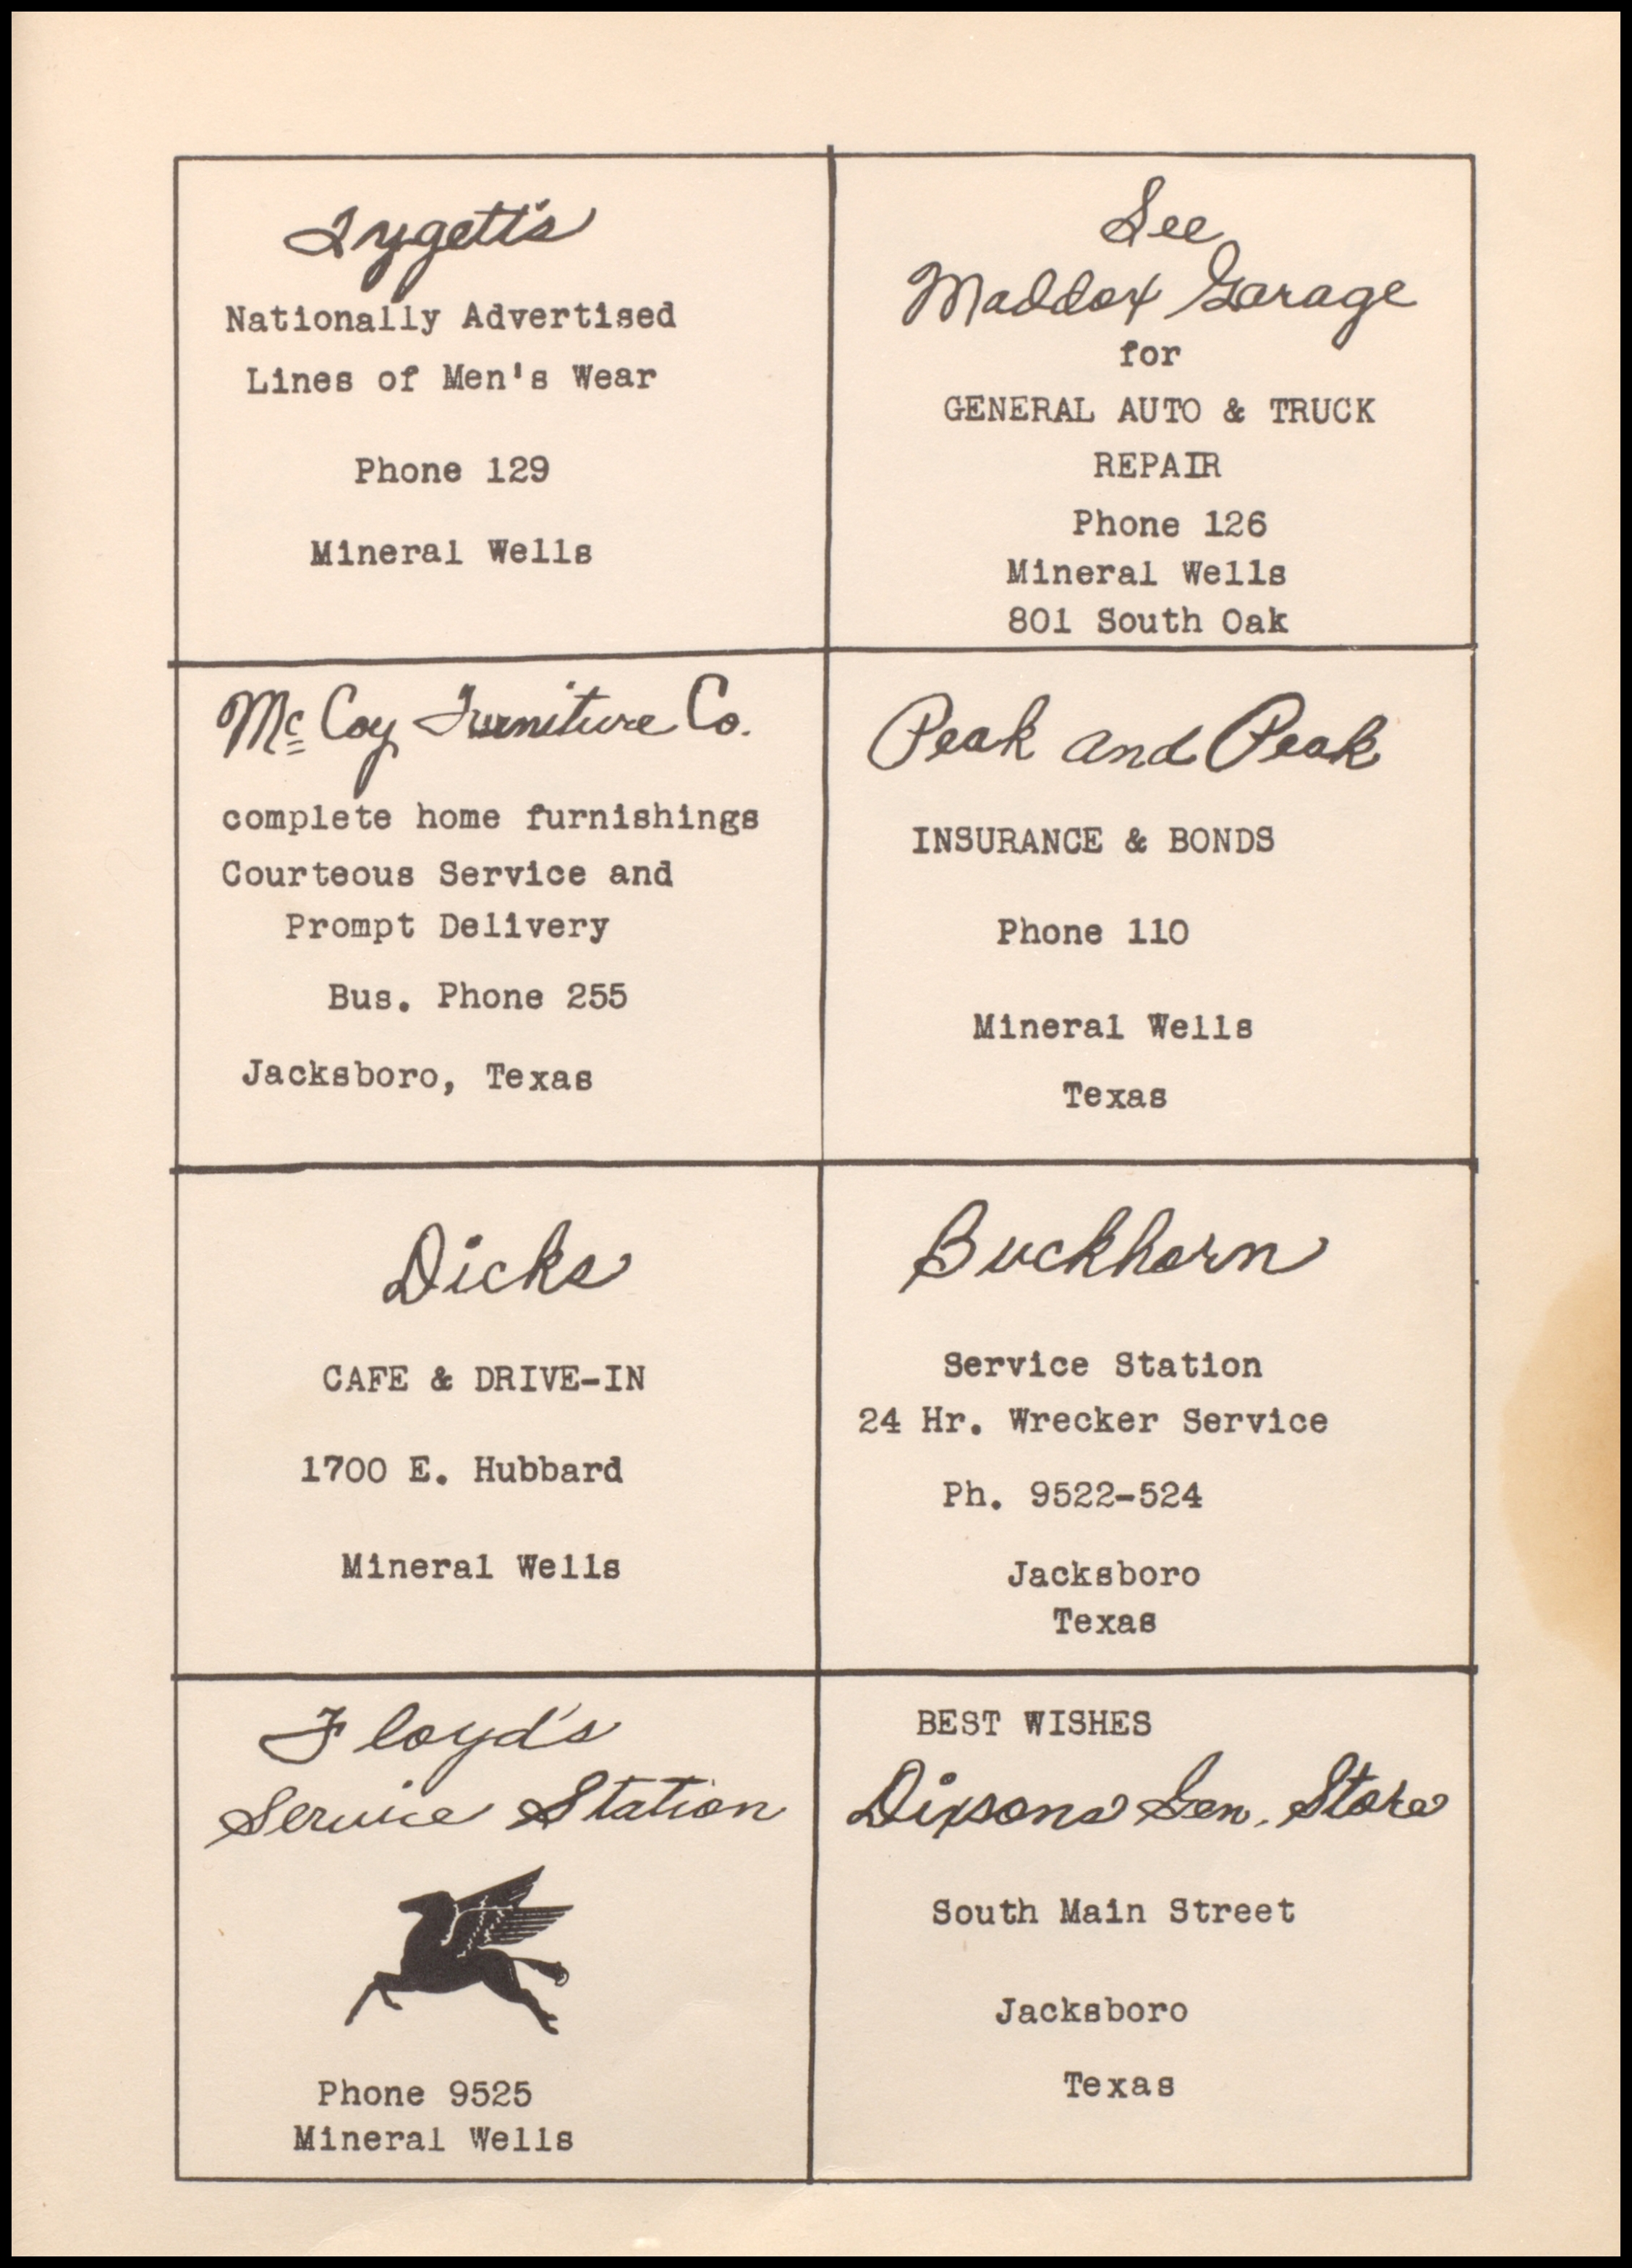 Tygett's
Nationally Advertised
Lines of Men's Wear
Phone 129
Mineral Wells
See
Maddox Garage
for
GENERAL AUTO & TRUCK
REPAIR
Phone 126
Mineral Wells
801 South Oak
Mc Coy Furniture Co.
complete home furnishings
Courteous Service and
Prompt Delivery
Bus. Phone 255
Jacksboro, Texas
Peak and Peak
INSURANCE & BONDS
Phone 110
Mineral Wells
Texas
Dicks
CAFE & DRIVE-IN
1700 E. Hubbard
Mineral Wells
Buckhorn
Service Station
24 Hr. Wrecker Service
Ph. 9522-524
Jacksboro
Texas
Floyd's
Service Station
Phone 9525
Mineral Wells
BEST WISHES
Dixsons Gen. Store
South Main Street
Jacksboro
Texas